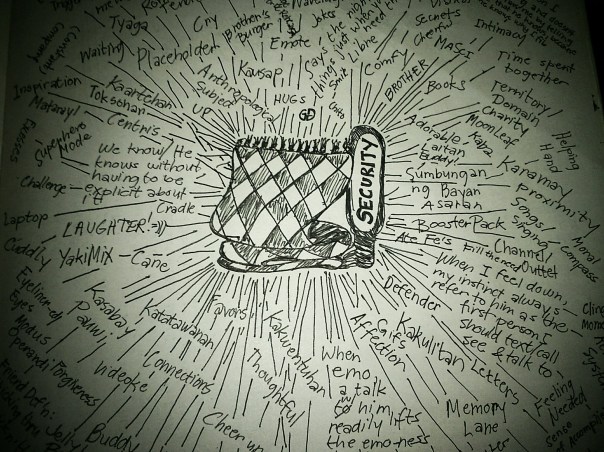 Cry
Tyaga
Brother's
Burger
Jokes
Secrets
Cheerful
Intimacy
Waiting
Placeholder
Emote
says the right
things just when
Libre
MaSci
Time spent
together
Inspiration
Kaantehan
Toksohan
Anthropological
Subject
Kausap
Comfy
BROTHER
Books
Territory/
Domain
Centris
UP
HUGS
Charity
MoonLeaf
Superhero
Node
Adorable
Kaba
Helping
Hand
We know/He
knows without
having to be
explicit about
it
Buddy
Karamay
Sumbungan
ng Bayan
Asaran
proximity
Challenge
Cradle
SECURITY
Songs/
singing
Moral
compass
Laptop
LAUGHTER! =))
Booster Pack
Ate Fe's
Channel/
Outlet
Cuddly
YakiMix
Cafe
When I feel down,
my instinct always
refer to him as the
first person I
should text/call
see & talk to
Defender
Eyes
Kasabay
Favors
Gifts
Affection
Kakulitan
Letters
Modus
Operandi
Forgiveness
Katatawanan
Kakwentuhan
Thoughtful
When
emo,
a talk
w/
to him
readily lifts
the emo-ness
Videoke
Connections
Feeling
Needed
Memory
Lane
Buddy
Cheer up
Sense